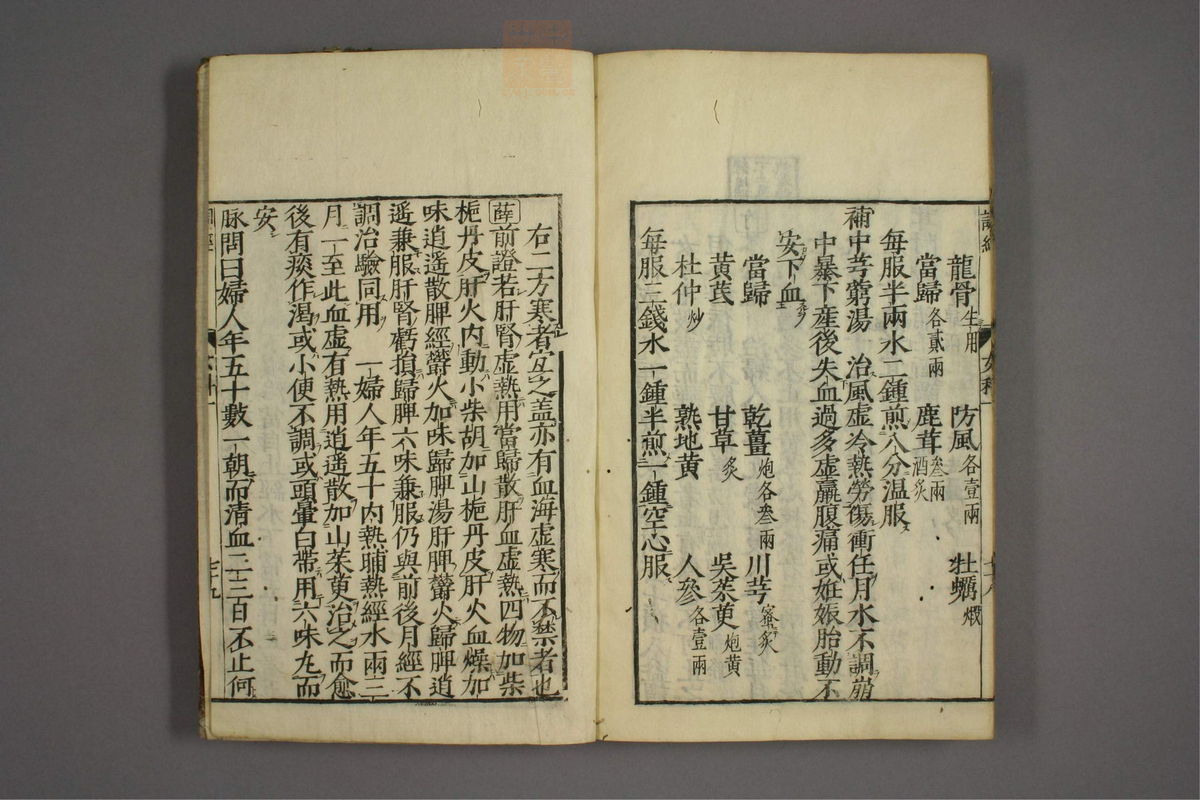 龍骨生用　防風各壹兩　牡蠣煅
當歸各貳兩　鹿茸叁兩酒炙
每服半兩水二鍾煎八分溫服
補中芎藭湯　治風虛冷熱勞傷衝任月水不調崩
中暴下產後失血過多虛羸腹痛或姙娠胎動不
安下血
當歸　乾薑炮各叁兩　川芎蜜炙
黃芪　甘草炙　吳茱萸炮黃
杜仲炒　熟地黃　人參各壹兩
每服三錢水一鍾半煎一鍾空心服
右二方寒者宜之蓋亦有血海虛寒而不禁者也
薛前證若肝腎虛熱用當歸散肝血虛熱四物加柴
梔丹皮肝火內動小柴胡加山梔丹皮肝火血燥加
味逍遙散脾經鬱火加味歸脾湯肝脾鬱火歸脾逍
遙兼服肝腎虧損歸脾六味兼服仍與前後月經不
調治驗同用　一婦人年五十內熱晡熱經水兩三
月一至此血虛有熱用逍遙散加山茱萸治之而愈
後有痰作渴或小便不調或頭暈白帶用六味丸而
安
脉問曰婦人年五十數一朝而清血二三日不止何